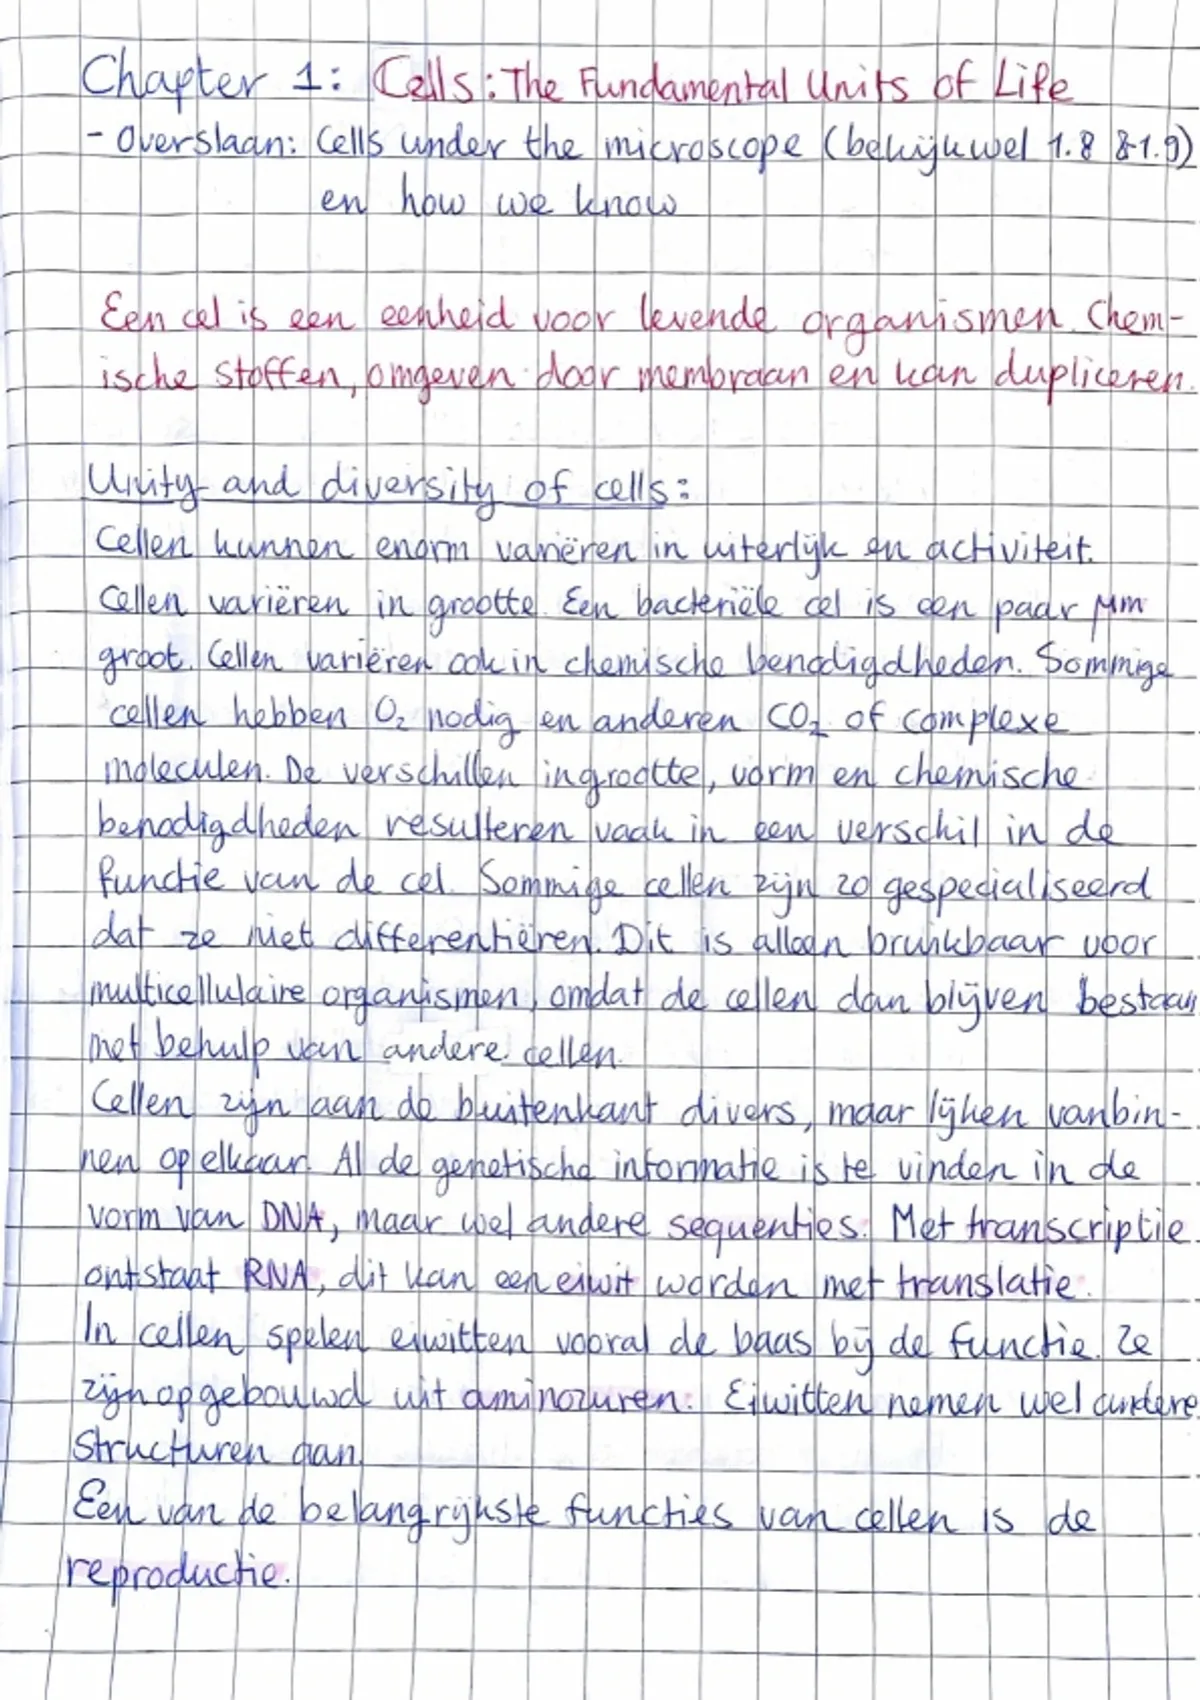 Chapter 1: Cells: The Fundamental Units of Life
- Overslaan: Cells under the microscope (bekijk wel 1.8 & 1.9)
en how we know
Een cel is een eenheid voor levende organismen. Chem-
ische stoffen, omgeven door membraan en kan dupliceren.
Unity and diversity of cells:
Cellen kunnen enorm variëren in uiterlijk en activiteit.
Cellen variëren in grootte. Een bacteriële cel is een paar µm
groot. Cellen variëren ook in chemische benodigdheden. Sommige
cellen hebben O₂ nodig en anderen CO₂ of complexe
moleculen. De verschillen in grootte, vorm en chemische
benodigdheden resulteren vaak in een verschil in de
functie van de cel. Sommige cellen zijn zo gespecialiseerd
dat ze niet differentiëren. Dit is alleen bruikbaar voor
multicellulaire organismen, omdat de cellen dan blijven bestaan
met behulp van andere cellen.
Cellen zijn aan de buitenkant divers, maar lijken vanbin-
nen op elkaar. Al de genetische informatie is te vinden in de
vorm van DNA, maar wel andere sequenties. Met transcriptie
ontstaat RNA, dit kan een eiwit worden met translatie.
In cellen spelen eiwitten vooral de baas bij de functie. Ze
zijn opgebouwd uit aminozuren. Eiwitten nemen wel andere
structuren aan.
Een van de belangrijkste functies van cellen is de
reproductie.